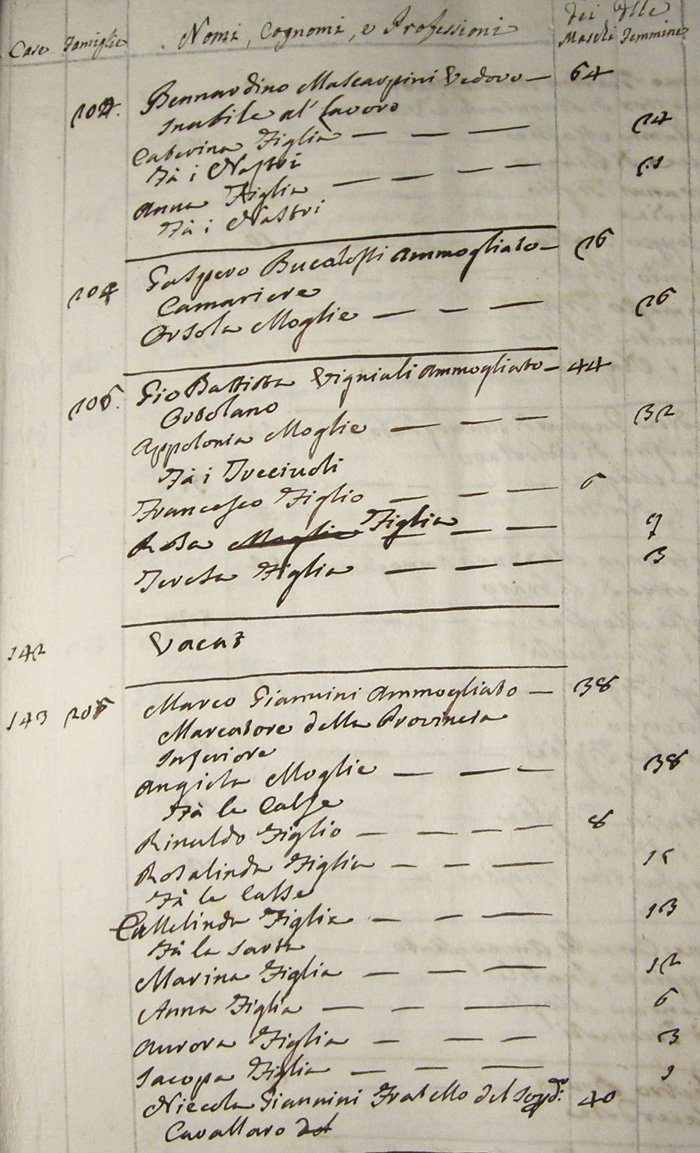 Case Famiglie Nomi, Cognomi, e Professioni Dei Maschi Dlle Femmine
Bernardino Mascarpini Vedovo — 64
Inabile al' Lavoro
Caterina Figlia — — — 14
Fà i Nastri
Anna Figlia — — — 11
Fà i Nastri
204 Gaspero Bucalossi Ammogliato — 26
Camariere
Orsola Moglie — — — 26
Gio Battista Vigniali Ammogliato — 44
Ortolano
Appolonia Moglie — — — 32
Fà i Trecciuoli
Francesco Figlio — — — 6
Rosa Moglie Figlia — — 9
Teresa Figlia — — — 3
142 Vacat
143 Marco Giannini Ammogliato — 38
Marcatore della Provincia
Inferiore
Angiola Moglie — — — 38
Fà le Calse
Rinaldo Figlio — — — — 8
Rosalinda Figlia — — — 15
Fà le Calse
Figlia — — — 13
Fà la Sarta
Marina Figlia — — — — 12
Anna Figlia — — — 6
Aurora Figlia — — — 3
Jacopa Figlia — — — 1
Niccola Giannini Fratello del 40
Cavallaro